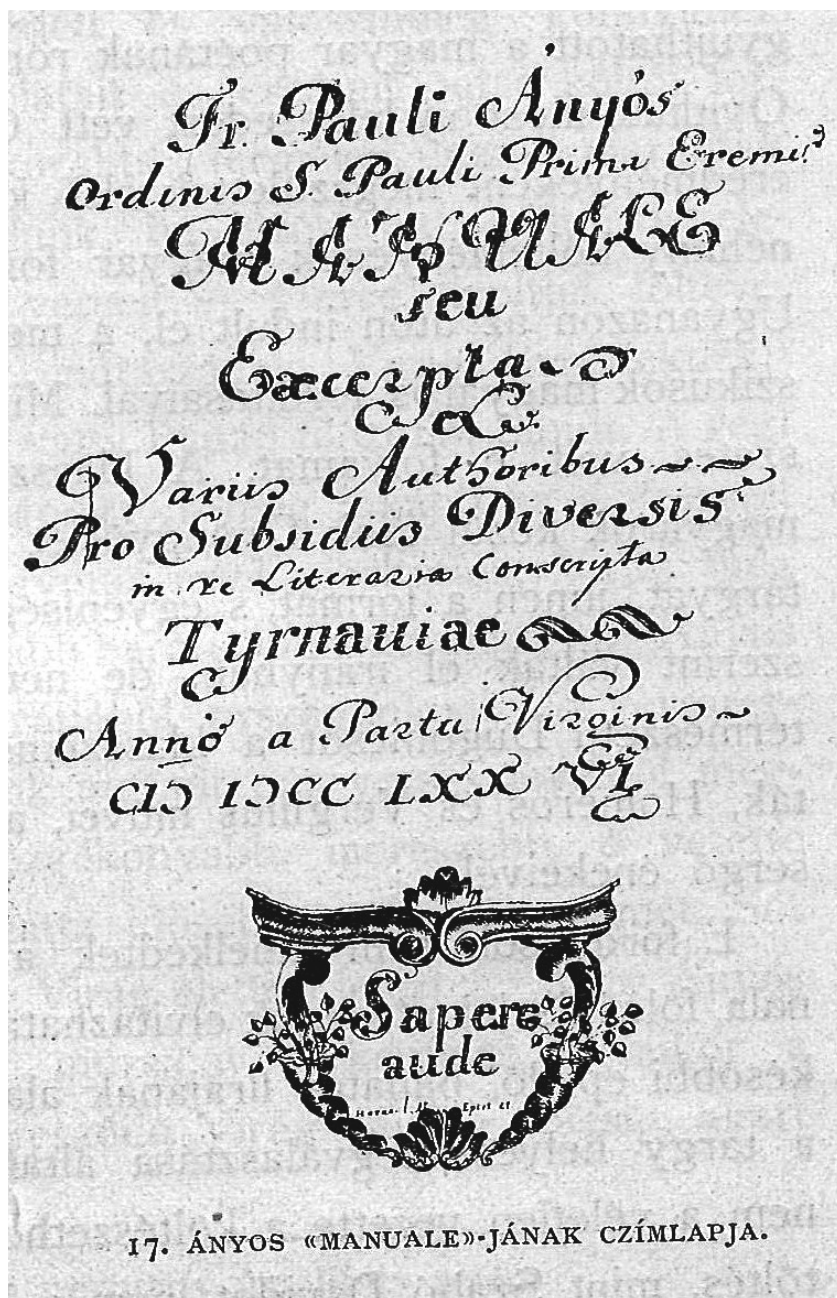 Fr. Pauli Ányós
Ordinis S. Pauli Primi Eremit?
MANUALE
seu
Excerpta
ex
Variis Authoribus
Pro Subsidiis Diversis
in re Literaria Conscripta
Tyrnaviae
Anno a Partu Virginis
CIↃ IↃCC LXXVI
Sapere
aude
Horat. l. Epist
17. ÁNYOS «MANUALE»-JÁNAK CZÍMLAPJA.